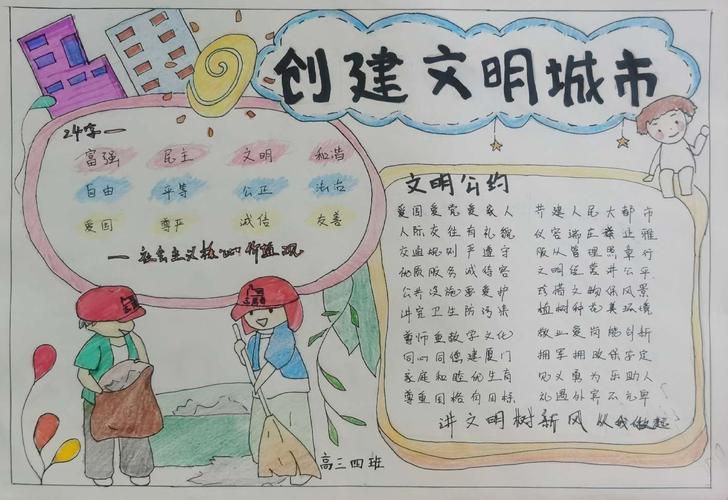 创建文明城市
24字一
富强 民主 文明 和谐
自由 平等 公正 法治
爱国 尊严 诚信 友善
一社会主义核心价值观
文明公约
爱国爱党爱家人 共建人民大都市
人际交往有礼貌 仪容端庄 止雅
交通规则严遵守 服从管理照章行
优质服务诚待客 文明经营讲公平
公共设施要爱护 珍惜文物保风景
讲究卫生防污染 植树种花美环境
尊师重教学文化 敬业爱岗能创新
同心同德建厦门 拥军拥政保安定
家庭和睦优生育 见义勇为乐助人
尊重国格有目标 礼遇外宾不 卑
讲文明树新风从我做起
高三四班